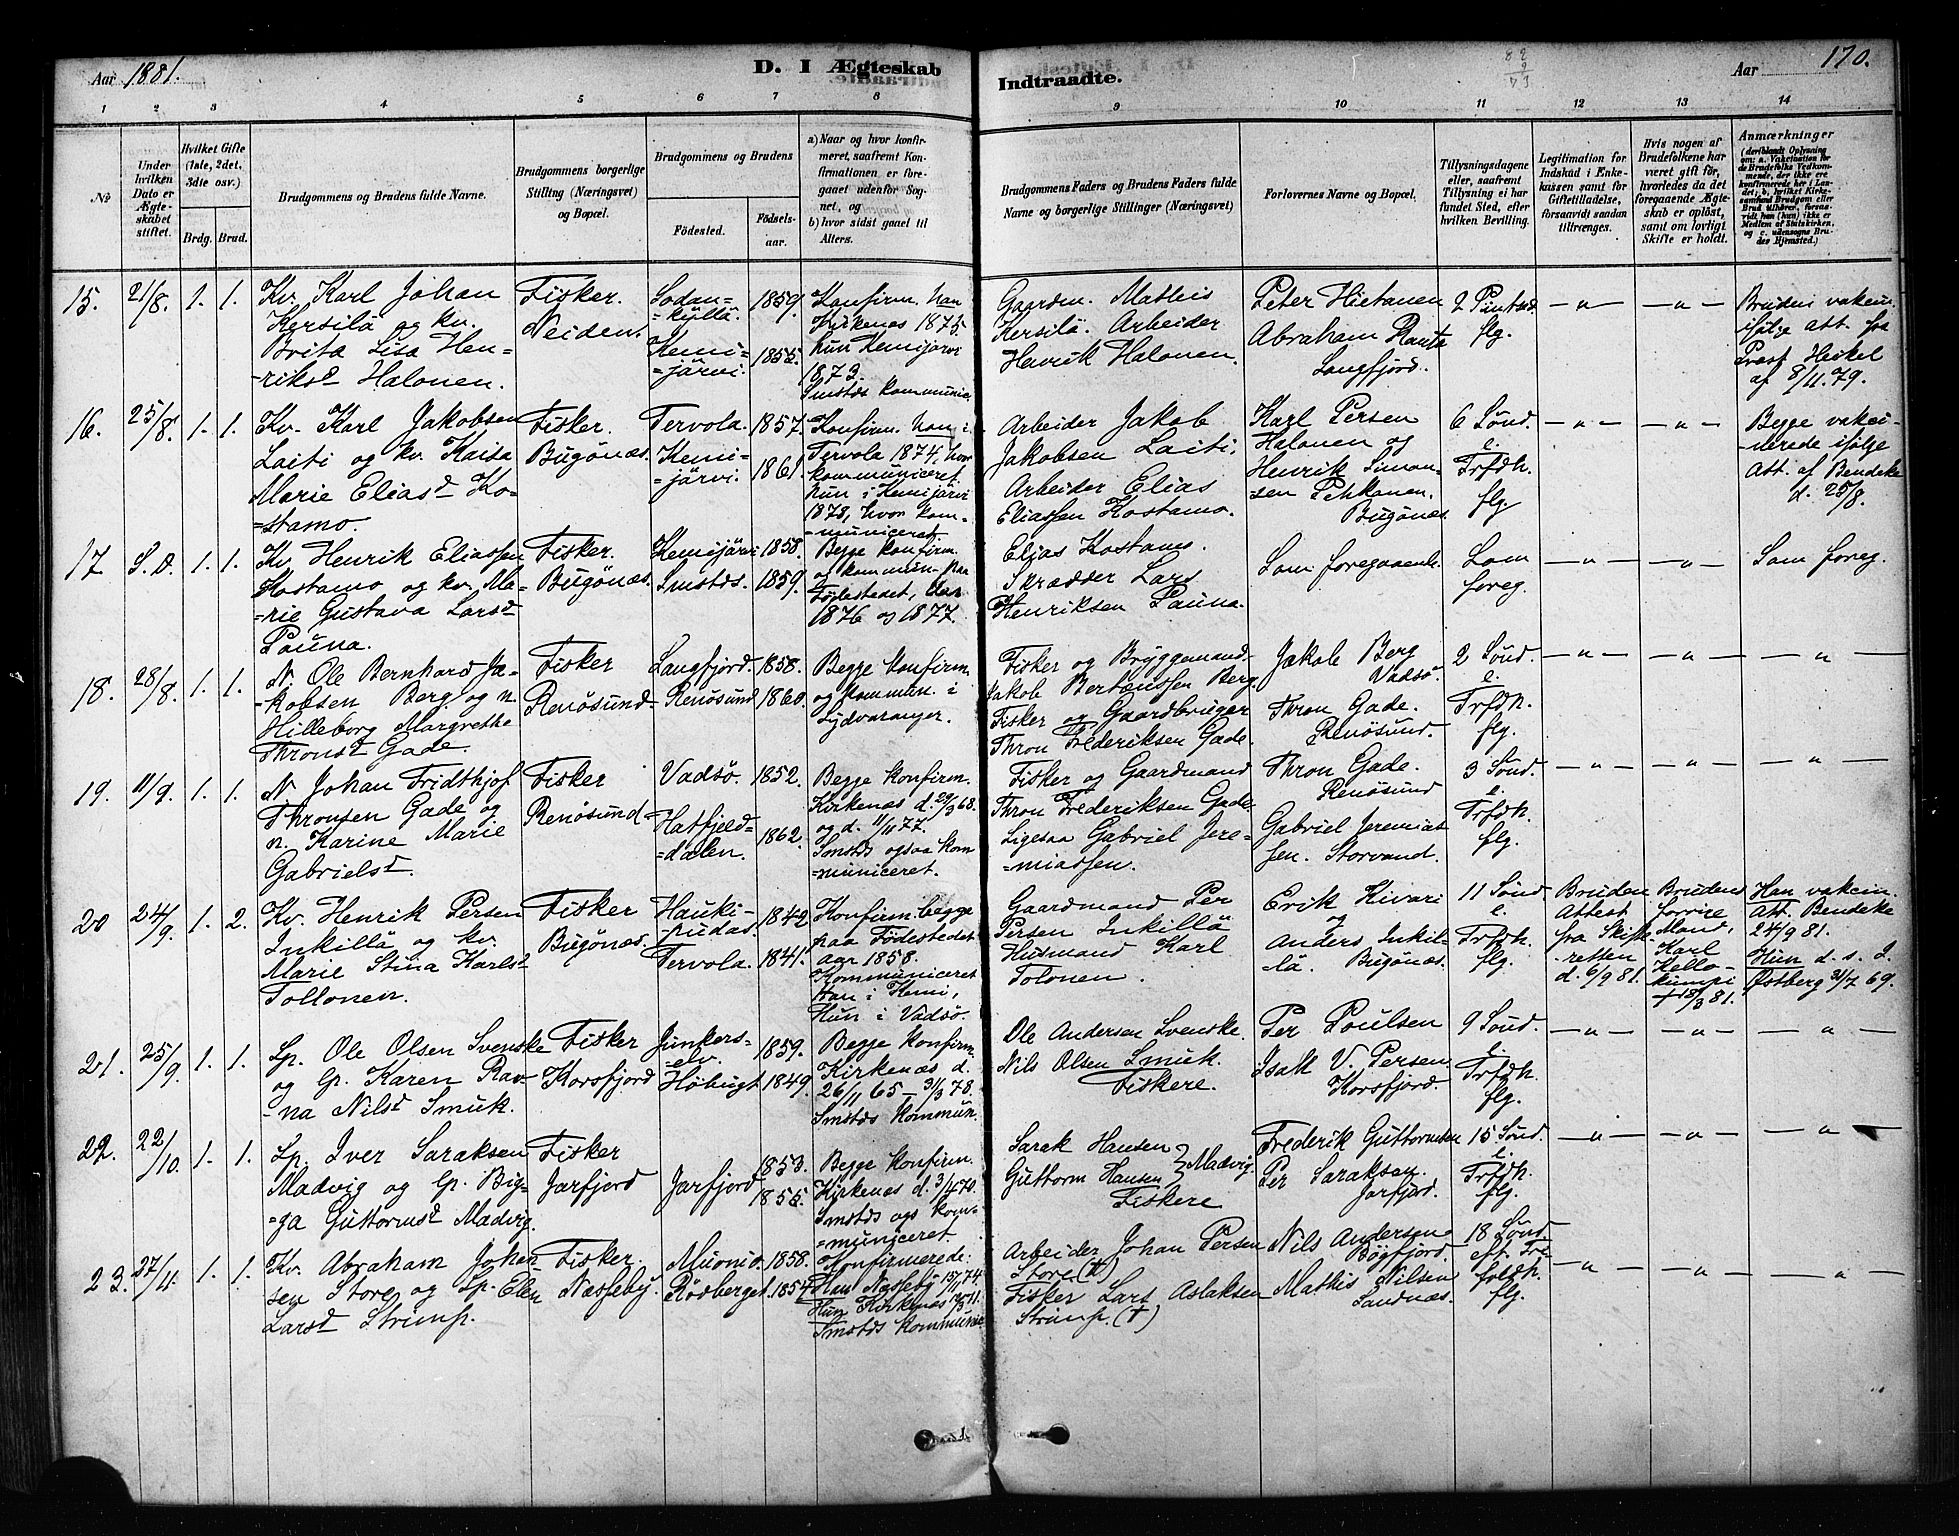 Aar 1881.
D. I Ægteskab
Indtraadte.
Aar
170.
1 2 3 4 5 6 7 8 9 10 11 12 13 14
No
Under hvilken Dato er Ægteskabet stiftet.
Hvilket Gifte (1ste, 2det, 3die osv.)
Brdg. Brud.
Brudgommens og Brudens fulde Navne.
Brudgommens borgerlige Stilling (Næringsvei) og Bopæl.
Brudgommens og Brudens
Fødested.
Fødselsaar.
a) Naar og hvor konfirmeret, saafremt Konfirmationen er foregaaet udenfor Sognet, og
b) hvor sidst gaaet til Alters.
Brudgommens Faders og Brudens Faders fulde Navne og borgerlige Stillinger (Næringsvei)
Forlovernes Navne og Bopæl.
Tillysningsdagene eller, saafremt Tillysning ei har fundet Sted, efter hvilken Bevilling.
Legitimation for Indskud i Enkekassen samt for Giftetilladelse, forsaavidt saadan tiltrænges.
Hvis nogen af Brudefolkene har været gift før, hvorledes da det foregaaende Ægteskab er opløst, samt om lovligt Skifte er holdt.
Anmærkninger
15. 21/8. 1. 1.
Kv. Karl Johan
Kersilä og kv.
Brita Lisa Hen-
=rikst Halonen.
Fisker.
Neiden.
Sodan=
=kyllä.
Kemi=
=järvi.
1859.
1855.
Konfirm. han
Kirkenas 1875.
hun Kemijärvi
1873.
Smstds kommunic.
Gaardm. Mathis
Kersilä. Arbeider
Henrik Halonen.
Peter Hietanen
Abraham Rauta
Langfjord.
2
flg.
— " —
— " —
Bruden vakcin.
ifølge att. fra
Præst Heikel
af 8/11.79.
16. 25/8. 1. 1.
Kv. Karl Jakobsen
Laiti og kv. Kaisa
Marie Eliasd Ko-
=stamo.
Fisker.
Bugønæs.
Tervola.
Kemi=
=järvi.
1857.
1861.
Konfirm. han i
Tervola 1874, hvor
kommuniceret.
hun i Kemijärvi
1878, hvor kom=
=municeret.
Arbeider Jakob
Jakobsen Laiti.
Arbeider Elias
Eliassen Kostamo.
Karl Persen
Halonen og
Henrik Simon-
sen Pekkanen.
Bugönæs.
6 Sönd.
e.
Trfdh.
flg.
— " —
— " —
Begge vakci-
=nerede ifølge
Att. af Bendeke
d. 25/8.
17 S.D. 1. 1.
Kv. Henrik Eliassen
Kostamo og kv. Ma-
=rie Gustava Larsd
Pauna.
Fisker.
Bugönæs.
Kemijärvi
Smstds.
1858.
1859.
Begge konfirm.
og kommun. paa
Fødestedet,
1876 og 1877.
Elias Kostamo.
Skrædder Lars
Henriksen Pauna.
Som foregaaende.
Som
foreg.
— " —
— " —
Som foreg.
18. 28/8. 1. 1.
N. Ole Bernhard Ja-
=kobsen Berg og n.
Hilleborg Margrethe
Thronsd Gade.
Fisker
Renösund
Langfjord.
Renösund
1858.
1860.
Begge konfirm.
og kommun. i
Sydvaranger.
Fisker og Bryggemand
Jakob Bertæussen Berg.
Fisker og Gaardbruger
Thron Frederiksen Gade.
Jakob Berg
Vadsö.
Thron Gade.
Renösund.
2 Sönd.
e.
Trfdh.
flg.
— " —
— " —
— " —
19. 11/9. 1. 1.
N. Johan Fridthjof
Thronsen Gade og
n. Karine Marie
Gabrielsd.
Fisker
Renösund
Vadsö.
Hatfjeld=
=dalen.
1852.
1862.
Begge konfirm.
Kirkenæs d. 29/3 68.
og d. 11/11 77.
Smstds ogsaa kom
=municeret.
Fisker og Gaardmand
Thron Frederiksen Gade.
Ligesaa Gabriel Jere-
=miassen.
Thron Gade.
Renösund
Gabriel Jeremias
sen. Storvand.
3 Sönd.
e.
Trfdh.
flg.
— " —
— " —
— " —
20 24/9. 1. 2.
Kv. Henrik Persen
Inkillä og kv.
Marie Stina Karlsd
Tollonen.
Fisker
Bugönæs.
Hauki-
=pudas.
Tervola.
1842
1841.
Konfirm. begge
paa Fødestedet
aar 1858.
Kommuniceret
Han i Kemi,
Hun i Vadsö.
Gaardmand Per
Persen Inkillä
Husmand Karl
Tolonen.
Erik Kivari
og
Anders Inkil-
lä. Bugönæs.
11 Sönd.
e.
Trfdh.
flg.
Bruden
Attest
fra Skifte-
retten
d. 6/9 81.
Brudens
forrige
Mand,
Karl
Kello-
kumpi
† 18/3 81.
Han vakcin.
Att. Bendeke
24/9 81.
Hun d. s. I.
Østberg 31/7 69.
21. 25/9. 1. 1.
Lp. Ole Olsen Svenske
og lp. Karen Rav-
=na Nilsd Smuk.
Fisker
Korsfjord
Junkers=
elv.
Höbugt
1859.
1849.
Begge konfirm.
Kirkenæs d.
26/11 65 – 31/3 78.
Smstds kommun.
Ole Andersen Svenske.
Nils Olsen Smuk.
Fiskere.
Per Poulsen
Isak V. Persen
Korsfjord.
9 Sönd.
e.
Trfdh.
flg.
— " —
— " —
— " —
22. 22/10. 1. 1.
Lp. Iver Saraksen
Madvig og lp. Big-
=ga Guttormsd Madvig.
Fisker
Jarfjord
Jarfjord
1853.
1855.
Begge konfirm.
Kirkenæs d. 3/4 70.
Smstds ogs kom=
=municeret.
Sarak Hansen
Guttorm Hansen } Madvig.
Fiskere
Frederik Guttormsen
Per Saraksen.
Jarfjord.
15 Sönd.
e.
Trfdh.
flg.
— " —
— " —
— " —
23. 27/11. 1. 1.
Kv. Abraham Johan-
sen Store og lp. Elen
Larsd Strimp.
Fisker.
Næsseby.
Muonio.
Rödberget.
1858.
1854.
Konfirmerede.
Han Næsseby 15/11 74.
Hun Kirkenæs 71.
Smstds kommunic.
Arbeider Johan Persen
Store (†)
Fisker Lars Aslaksen
Strimp. (†)
Nils Andersen
Bögfjord.
Mathis Nilsen
Sandnæs.
18 Sönd
eft. Tre
foldh.
flg.
— " —
— " —
— " —